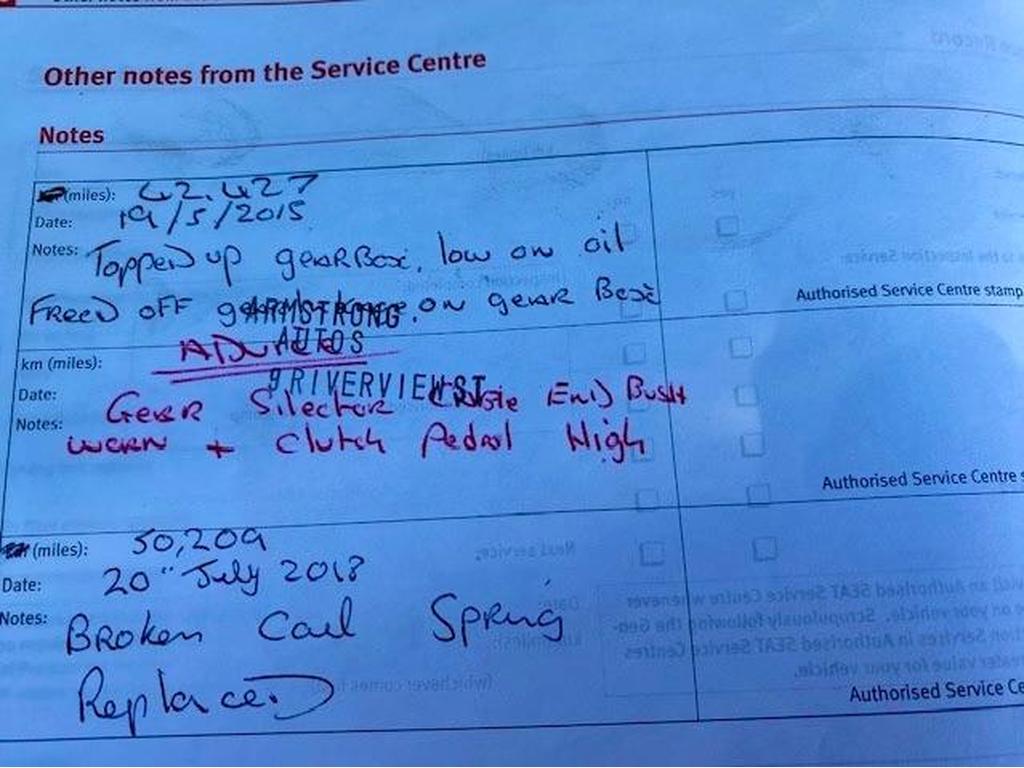 Other notes from the Service Centre
Notes
(miles): 42.427
Date: 19/5/2015
Notes: Topped up gearBox, low on oil
FreeD OFF on gear Box
Authorised Service Centre stamp
ARMSTRONG
AUTOS
9 RIVERVIEW ST
km (miles):
Date:
Notes:
Gear Silector Cable End Bush
worn + Clutch Pedal High
Authorised Service Centre
(miles): 50,209
Date: 20" July 2018
Notes: Broken Coil Spring
Replaced
Authorised Service Ce